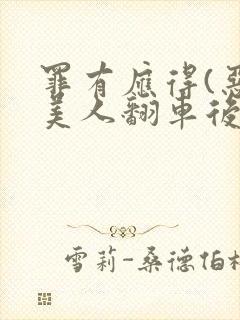 罪有應得(惡
美人翻車後
雪莉-桑德伯格